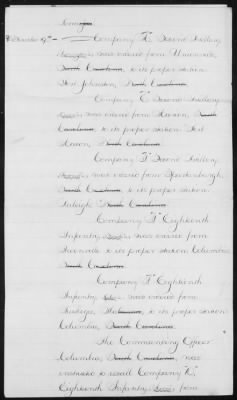 December 19th — Company "K" Second Artillery
was ordered from Unionville,
South Carolina, to its proper station
Fort Johnston, North Carolina.
Company "E" Second Artillery
was ordered from
Carolina, to its proper station Fort
Macon, North Carolina.
Company "F" Second Artillery
was ordered from Spartanburgh,
South Carolina, to its proper station
Raleigh North Carolina.
Company "F" Eighteenth
Infantry was ordered from
to its proper station, Columbia,
South Carolina.
Company "F" Eighteenth
Infantry was ordered from
to its proper station
Columbia, South Carolina.
The Commanding Officer
Columbia, South Carolina, was
instructed to recall Company "K,"
Eighteenth Infantry from